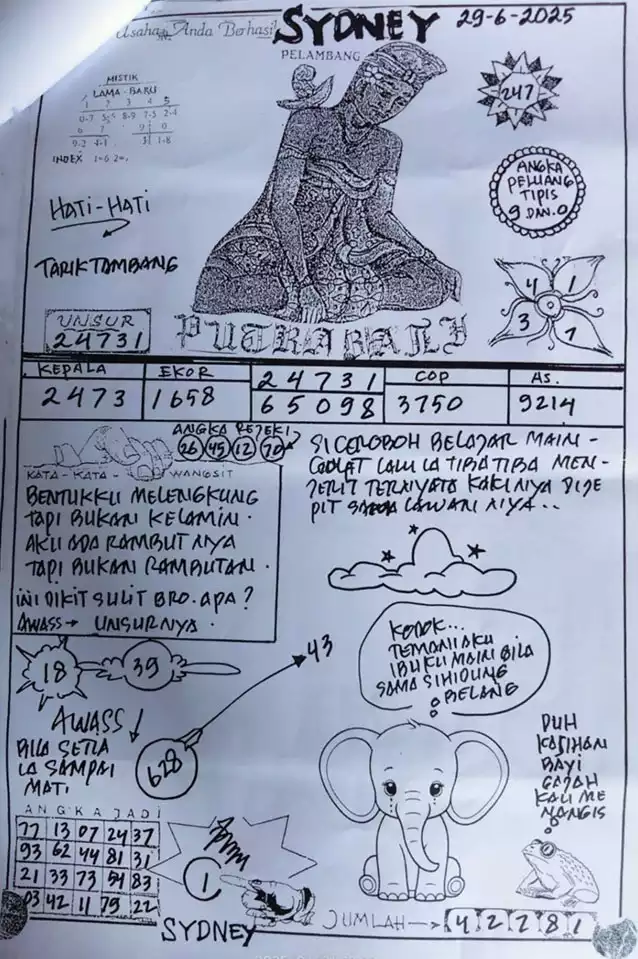 Usaha Anda Berhasil
SYDNEY
29-6-2025
PELAMBANG
MISTIK
LAMA-BARU
1 2 3 4 5
0-7 5 8-9 7-5 2-4
6 7 9 0
9-2 4-1 3 1-8
INDEX
247
ANGKA
PELUANG
TIPIS
9 DAN.0
HATI-HATI
TARIK TAMBANG
4 1
3 7
UNSUR
24731
PUTRA BALI
KEPALA EKOR 24731 COP AS.
2473 1658 65098 3750 9214
ANGKA REJEKI
26 45 12 70
KATA-KATA WANGSIT
BENTUKKU MELENGKUNG
TAPI BUKAN KELAMIN.
AKU ADA RAMBUTNYA
TAPI BUKAN RAMBUTAN.
INI DIKIT SULIT BRO. APA?
AWASS → UNSURNYA.
SI CEROBOH BELAJAR MAIN-
COOLAT LALU LA TIBA TIBA MEN-
JERIT TERNIYATA KAKINIYA DIJE
PIT LAWANNIYA..
18 39
43
AWASS
BILA SETIA
LA SAMPAI
MATI
628
KODOK...
TEMANI AKU
IBUKU MAIN BILA
SAMA SIHIDUNG
BELANG
DUH
KASIHAN
BAYI
GAJAH
KALI ME
NANGIS
ANGKA JADI
77 13 07 24 37
93 62 44 81 31
21 33 73 54 83
03 42 11 75 22
1
SYDNEY
JUMLAH → 4 2 2 7 8 1